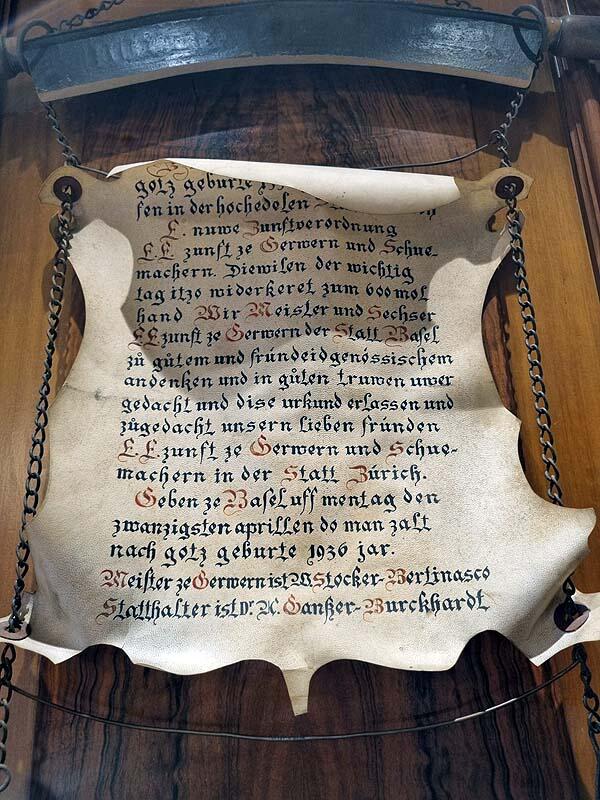 gotz geburte
fen in der hochedelen
E. nuwe Zunftverordnung
E.E. zunft ze Gerwern und Schue-
machern. Diewilen der wichtig
tag itzo widerkeret zum 600 mol
hand Wir Meister und Sechser
E.E. zunft ze Gerwern der Statt Basel
zů gůtem und fründeidgenössischem
andenken und in gůten truwen uwer
gedacht und dise urkund erlassen und
zůgedacht unsern lieben fründen
E.E. zunft ze Gerwern und Schue-
machern in der Statt Zürich.
Geben ze Basel uff mentag den
zwanzigsten aprillen do man zalt
nach gotz geburte 1936 jar.
Meister ze Gerwern ist W Stocker-Bertinasco
Statthalter ist Dr. Ganßer-Burckhardt